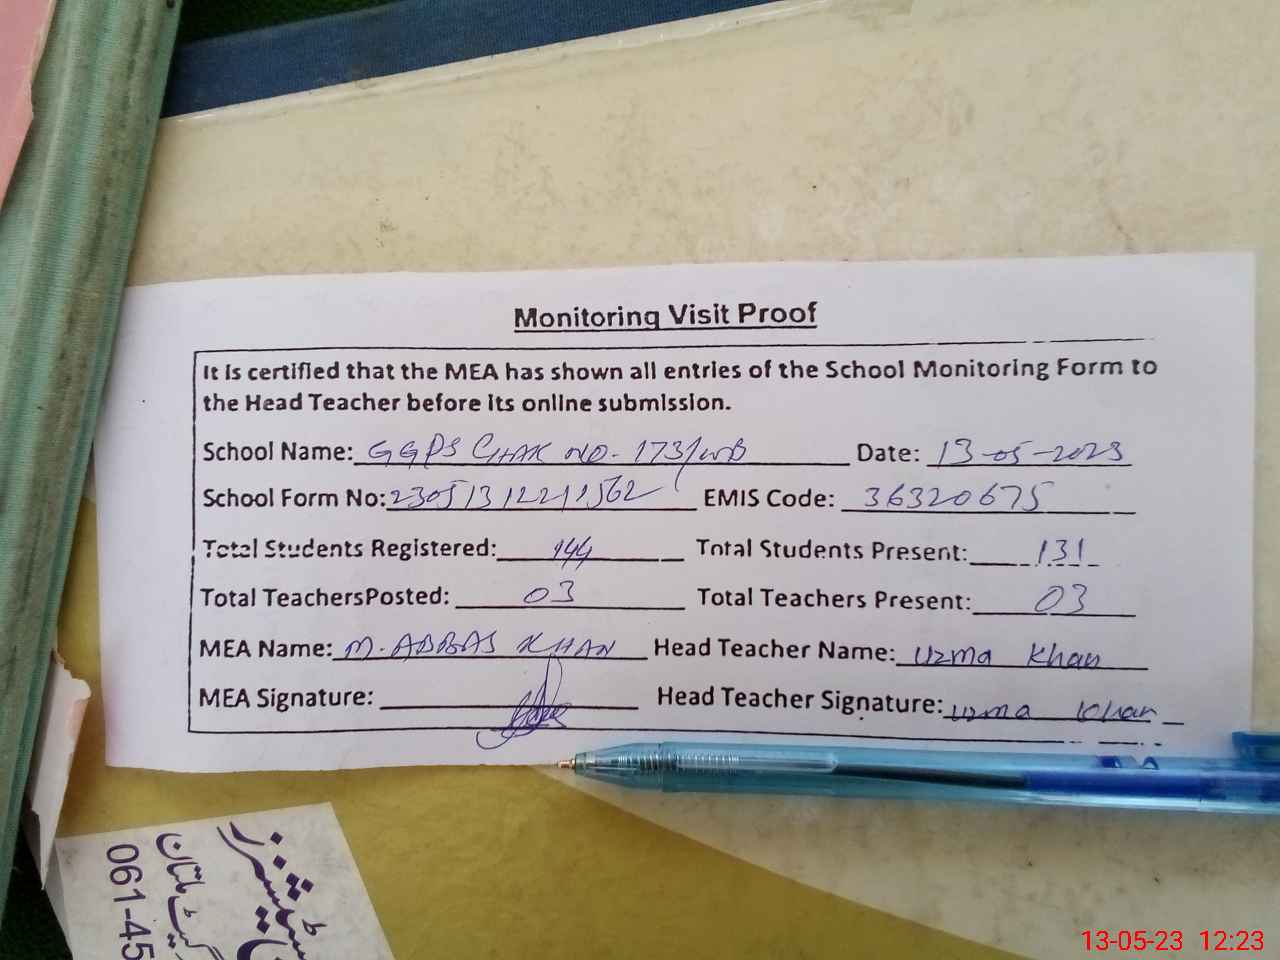 Monitoring Visit Proof
It is certified that the MEA has shown all entries of the School Monitoring Form to
the Head Teacher before its online submission.
School Name: GGPS CHAK NO. 173/WB Date: 13-05-2023
School Form No: EMIS Code: 36320675
Total Students Registered: 144 Total Students Present: 131
Total TeachersPosted: 03 Total Teachers Present: 03
MEA Name: M. ABBAS KHAN Head Teacher Name: Uzma Khan
MEA Signature: Head Teacher Signature: Uzma Khan
061-45
13-05-23 12:23